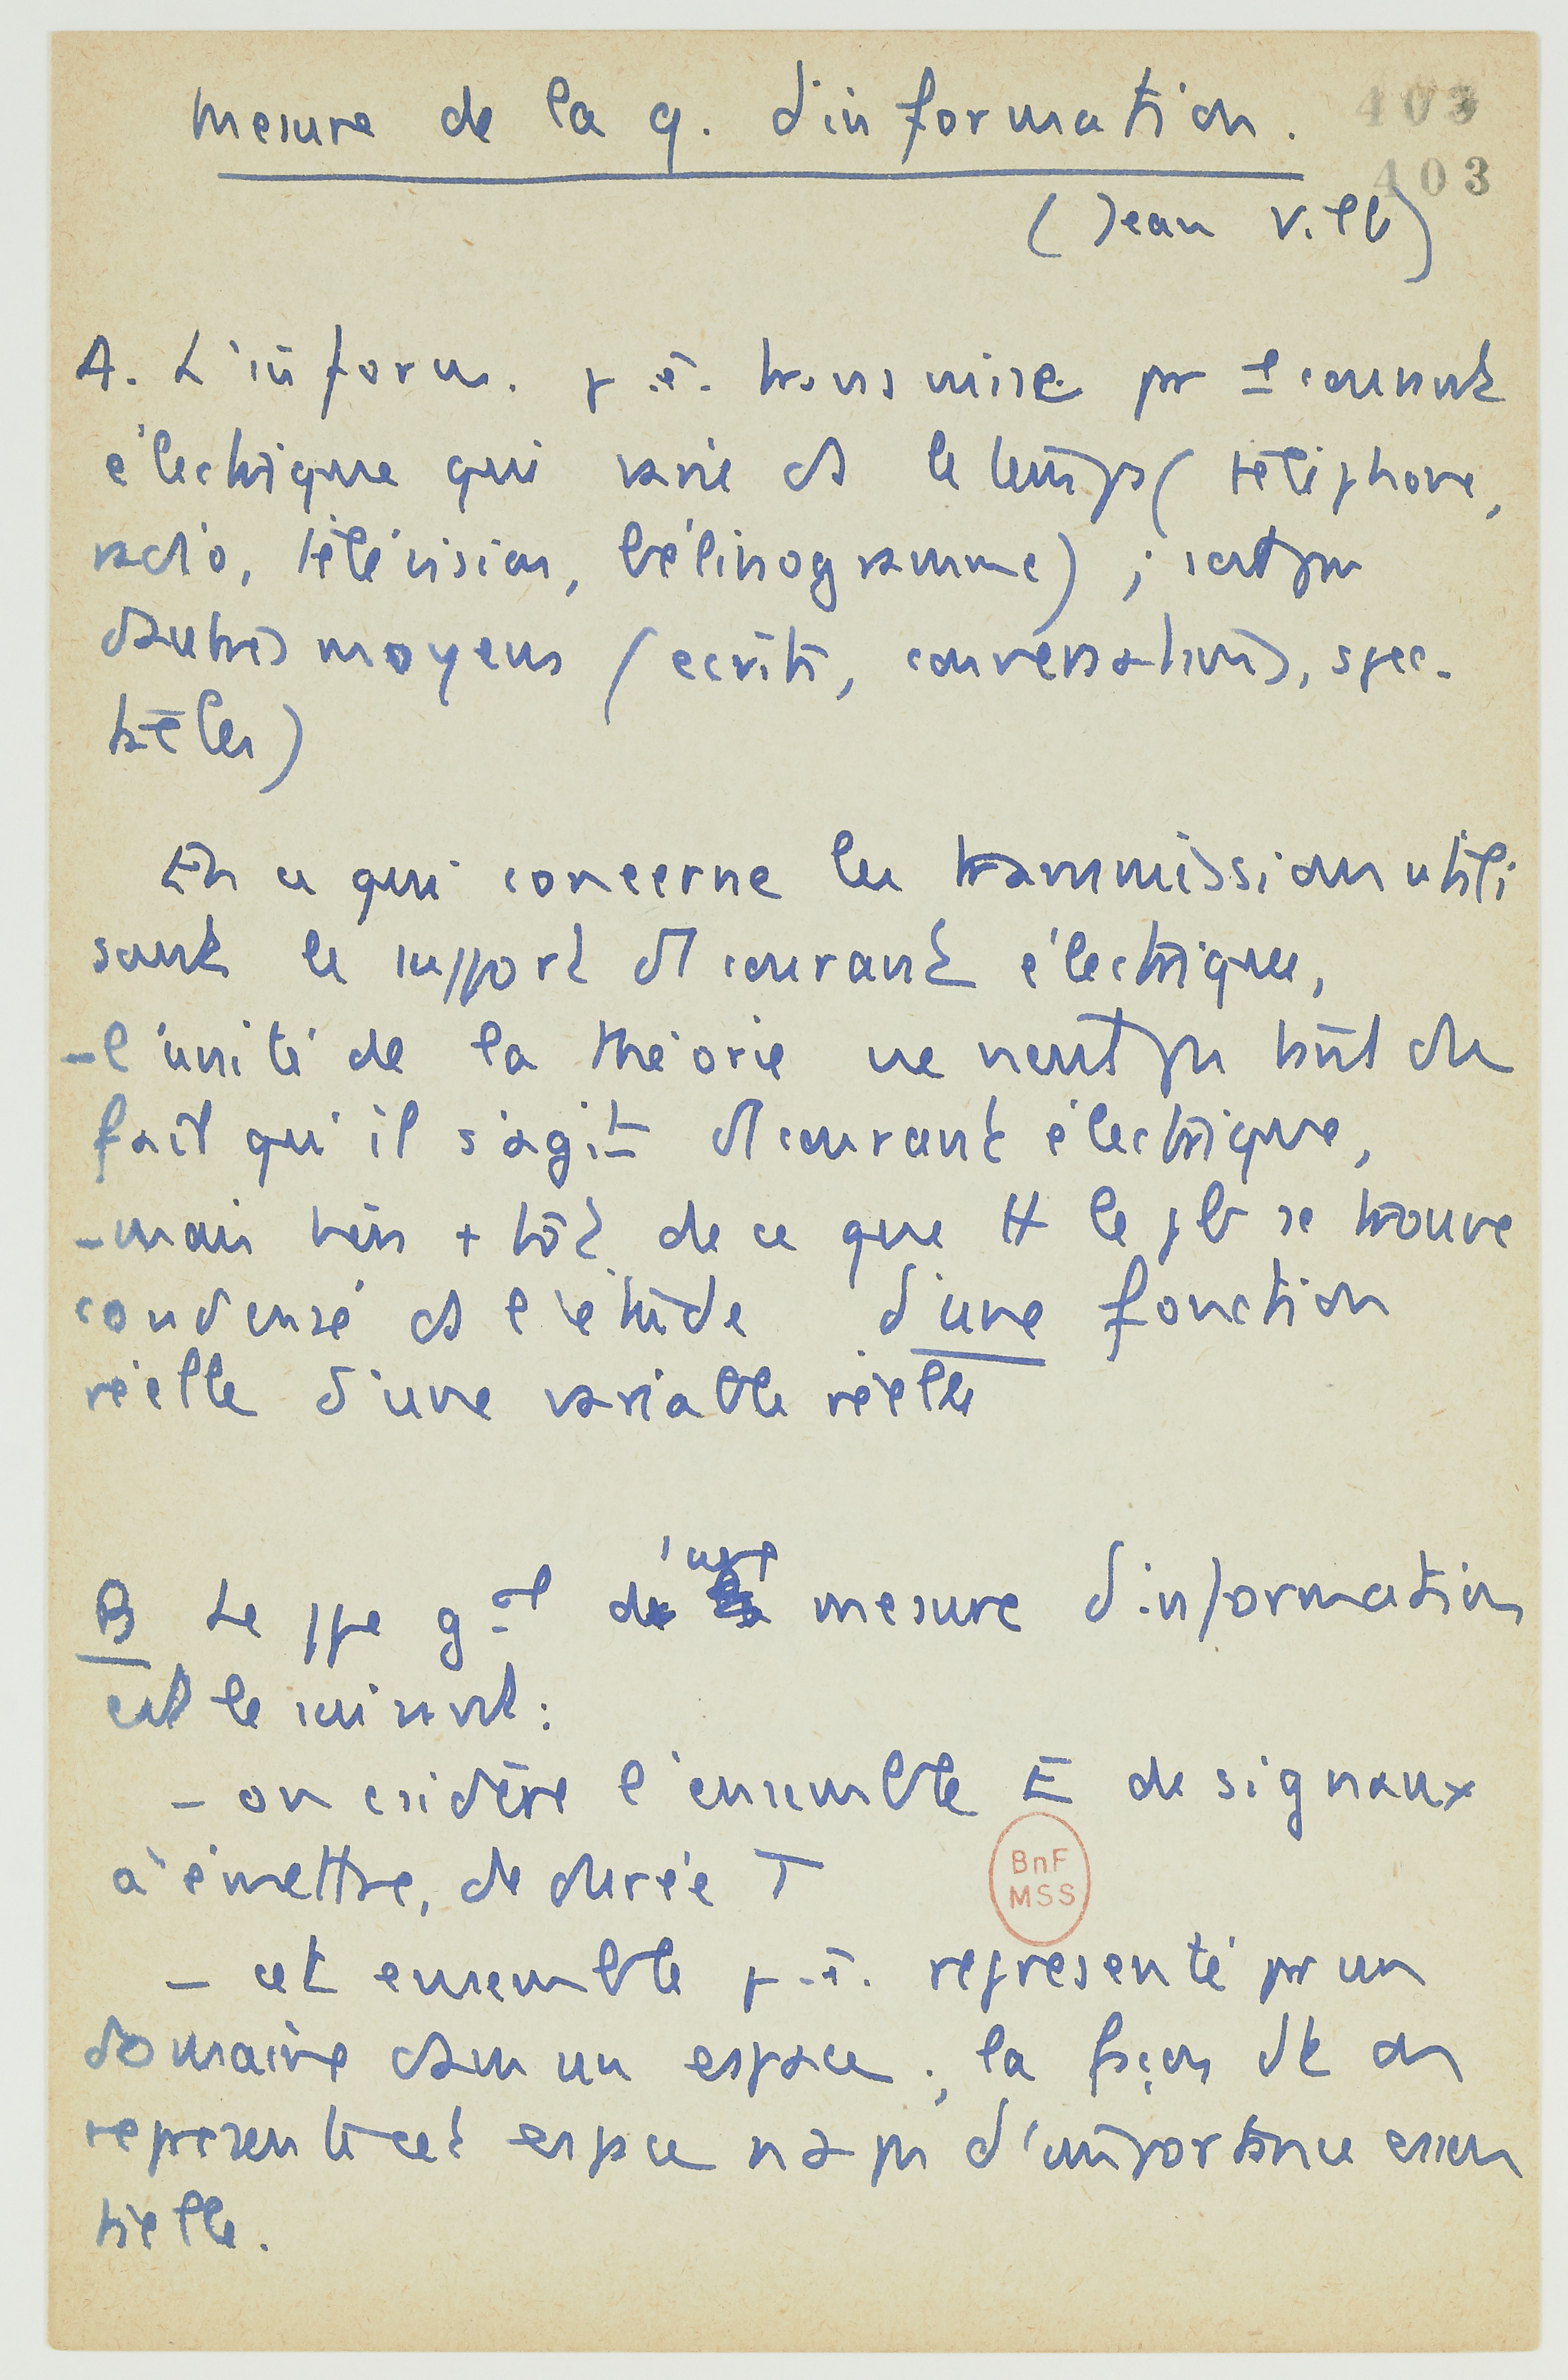 Mesure de la q. d'information.
403
403
(Jean Ville)
A. L'inform. p.ê. transmise pr le courant
électrique qui varie ds le temps (téléphone,
radio, télévision, bélinogramme) ; et par
d'autres moyens (écrits, conversations, spec-
tacles)
En ce qui concerne les transmissions utili
sant le support du courant électrique,
- l'unité de la théorie ne vient pas tant du
fait qu'il s'agit du courant électrique,
- mais bien + tôt de ce que tt le pb se trouve
condensé ds l'étude d'une fonction
réelle d'une variable réelle
B Le ppe gal d'une mesure d'information
est le suivant :
- on csidère l'ensemble E de signaux
à émettre, de durée T
BnF
MSS
- cet ensemble p.ê. représenté pr un
domaine dans un espace ; la façon dt on
représente cet espace n'a pas d'importance essen
tielle.